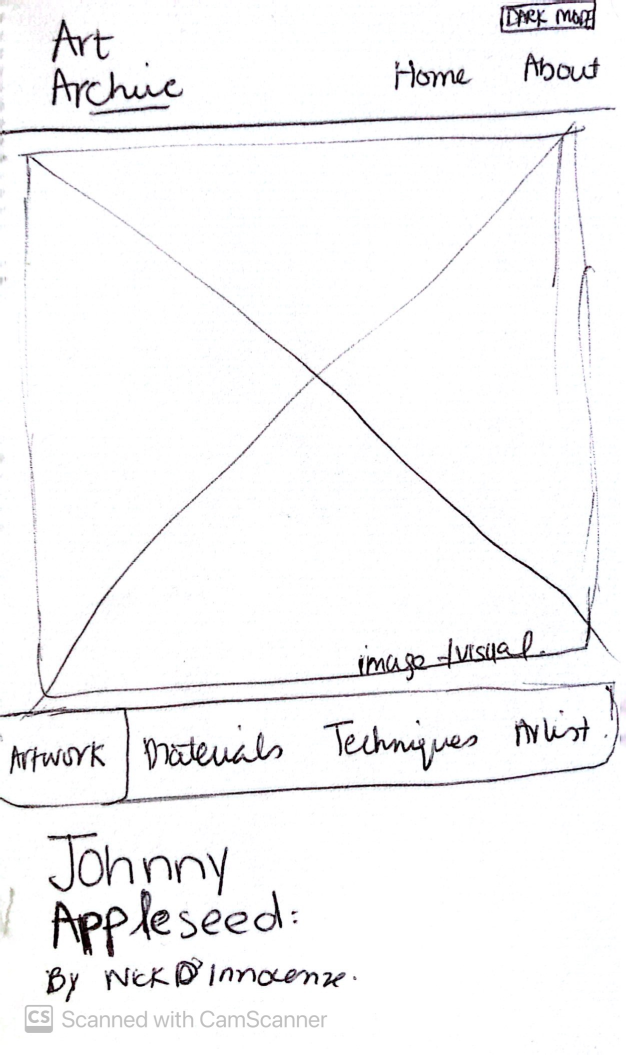 DARK MODE
Art
Archive
Home About
image/visual.
Artwork Materials Techniques Artist
Johnny
Appleseed:
By Nick D'Innocenze.
CS Scanned with CamScanner